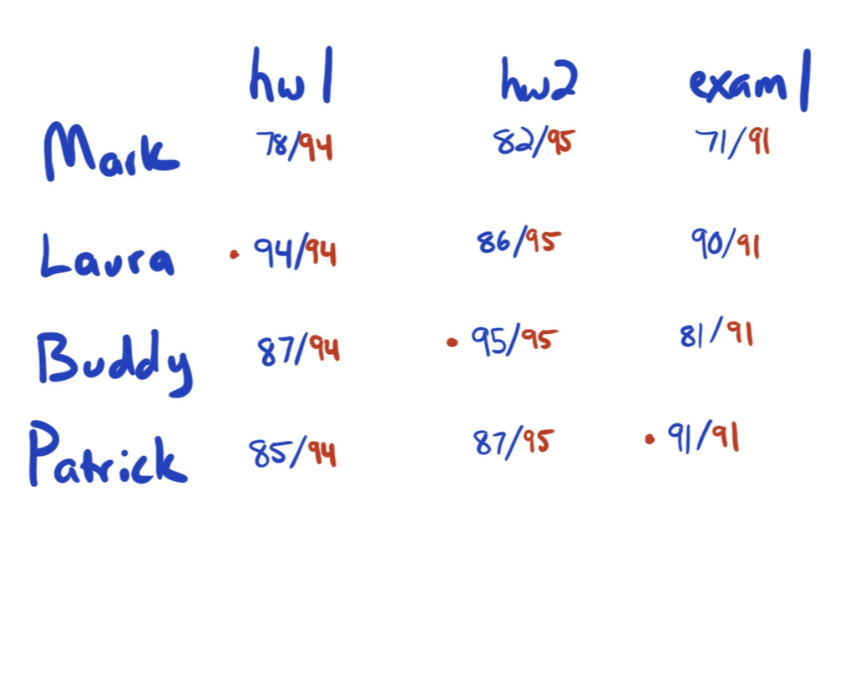 hw1 hw2 exam1
Mark 78/94 82/95 71/91
Laura • 94/94 86/95 90/91
Buddy 87/94 • 95/95 81/91
Patrick 85/94 87/95 • 91/91